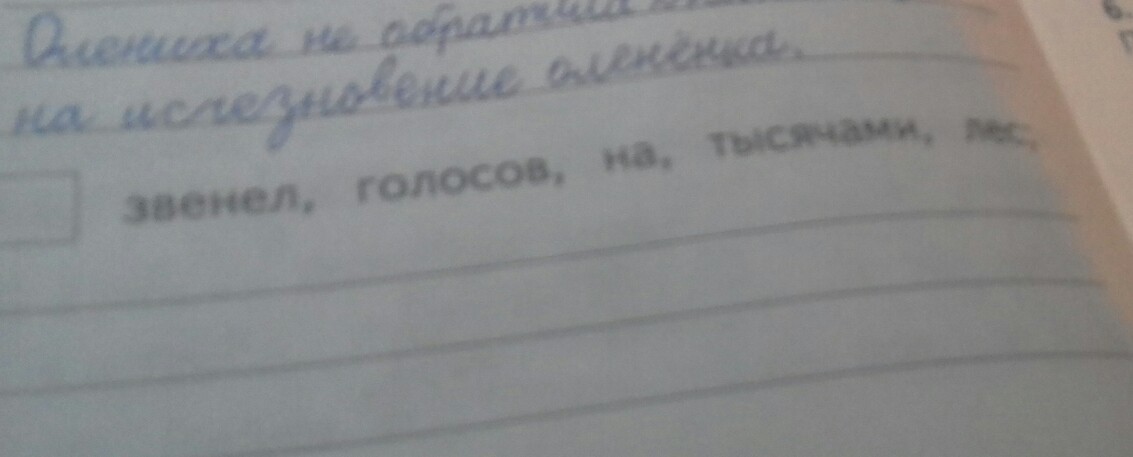 Олениха не обратила
на исчезновение оленёнка.
звенел, голосов, на, тысячами, лес,
6.